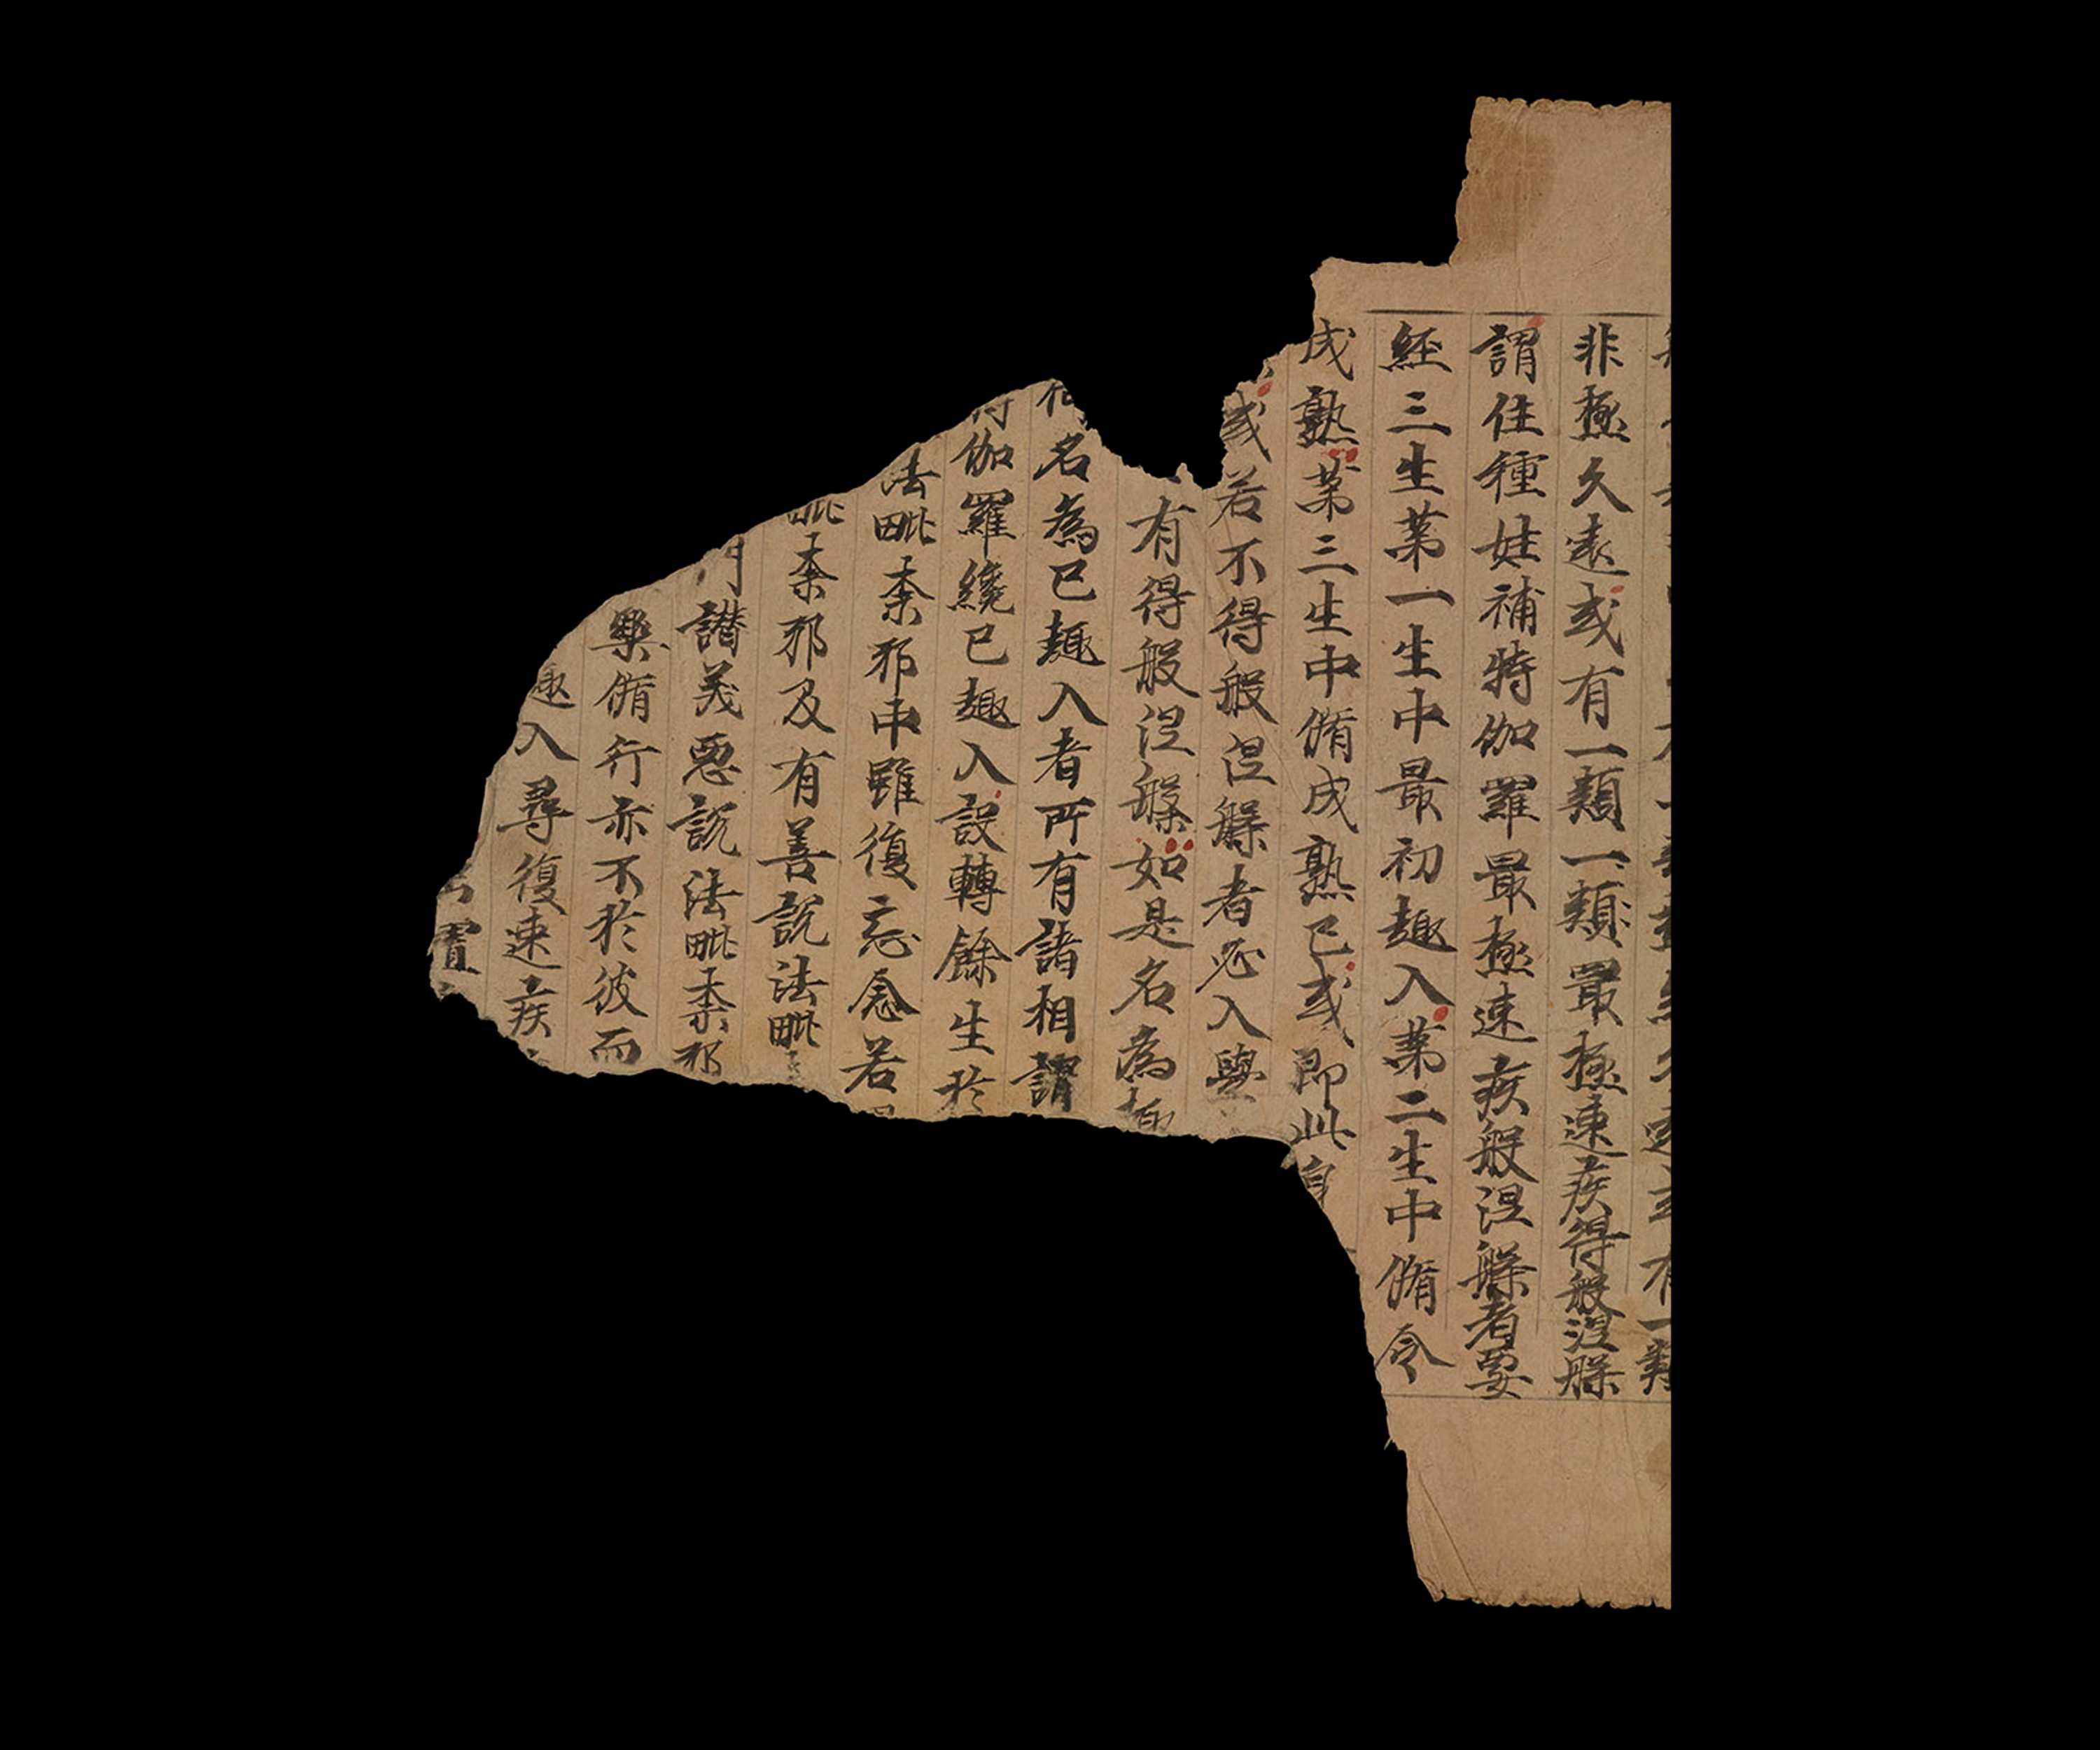 非極久遠或有一類一類最極速疾得般涅槃
謂住種姓補特伽羅最極速疾般涅槃者要
經三生苐一生中最初趣入苐二生中脩令
成熟苐三生中脩成熟已或即此身
或若不得般涅槃者必入學
有得般涅槃如是名為
名為已趣入者所有諸相謂
伽羅纔已趣入設轉餘生於
法毗柰耶中雖復忘念若
毗柰耶及有善說法毗
讚美惡說法毗柰耶
樂脩行亦不於彼而
趣入尋復速疾
實